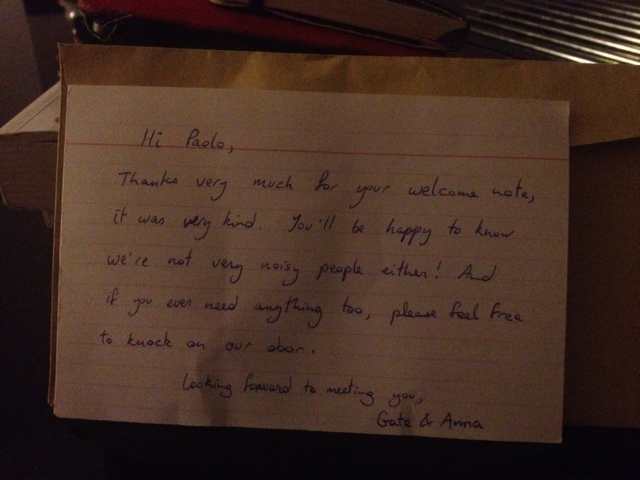 Hi Paolo,
Thanks very much for your welcome note,
it was very kind. You'll be happy to know
we're not very noisy people either! And
if you ever need anything too, please feel free
to knock on our door.
Looking forward to meeting you,
& Anna